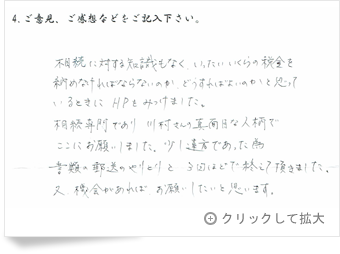 4.ご意見、ご感想などをご記入下さい。
相続に対する知識もなく、いったいいくらの税金を
納めなければならないのか、どうすればよいのかと思って
いるときにHPをみつけました。
相続専門であり 川村さんの真面目な人柄で
ここにお願いしました。少し遠方であった為
書類の郵送のやりとりと 3回ほどで終えて頂きました。
又、機会があればお願いしたいと思います。
クリックして拡大